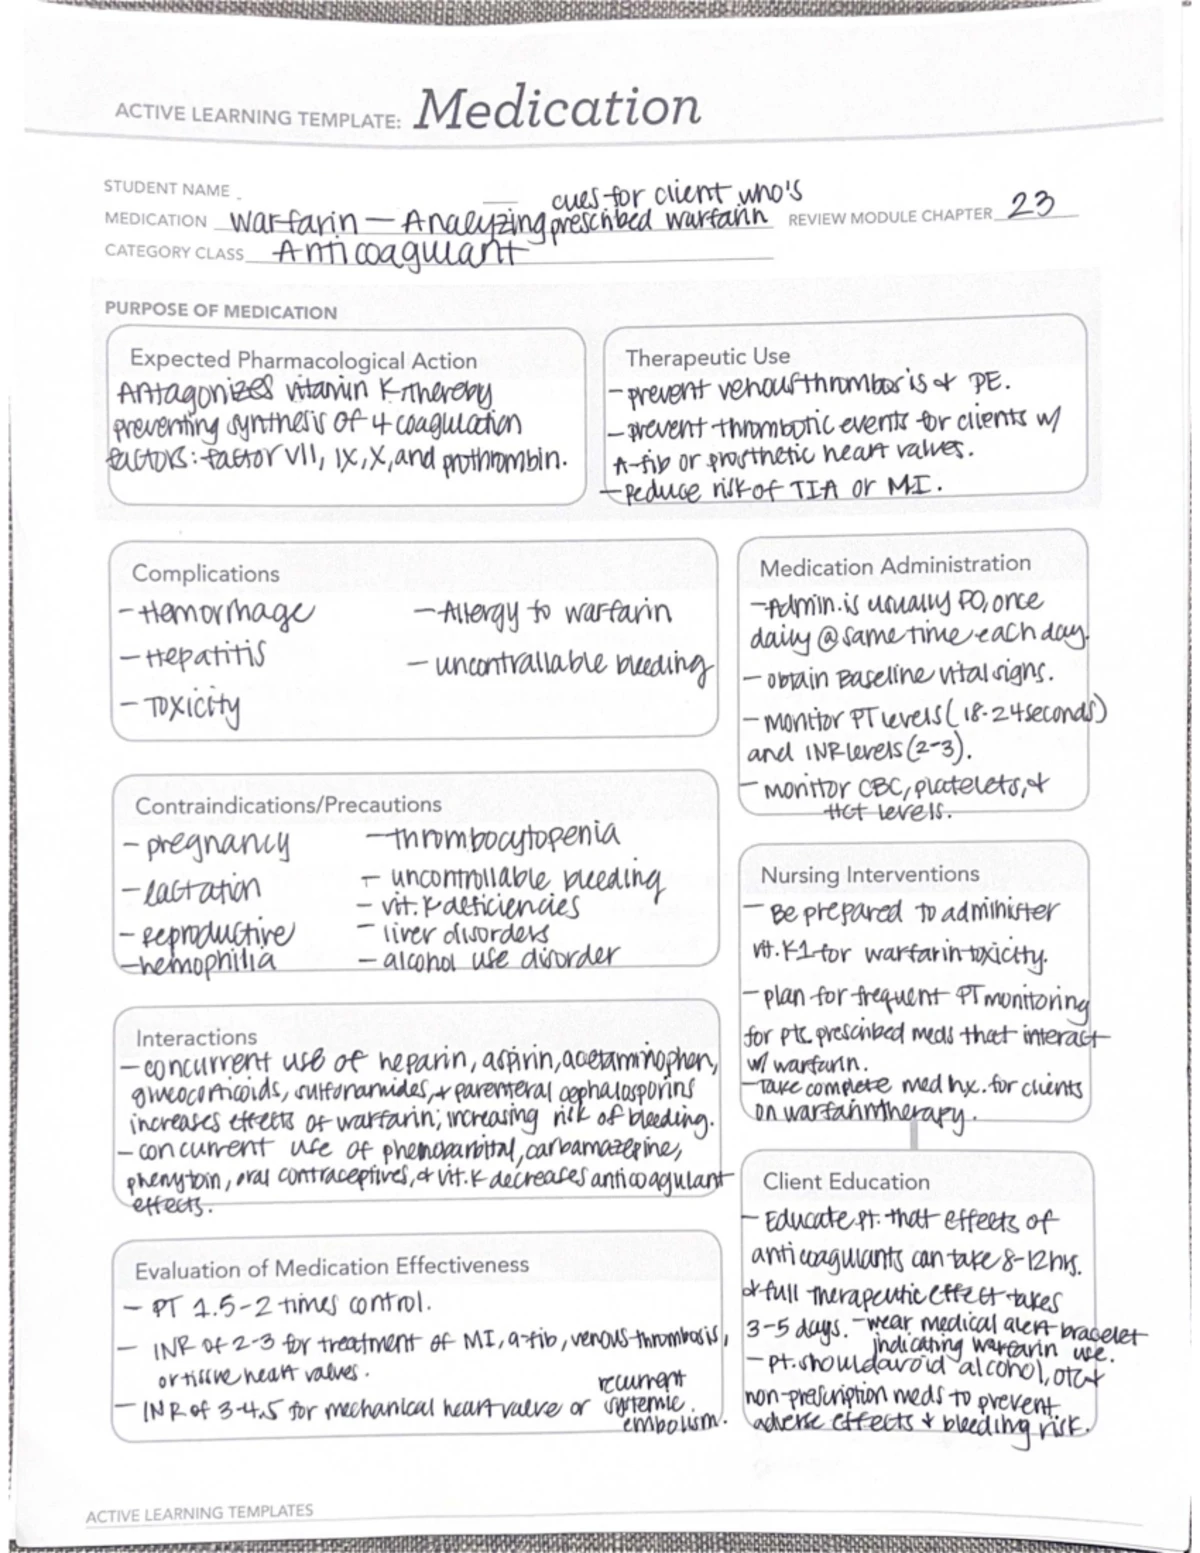 ACTIVE LEARNING TEMPLATE: Medication
STUDENT NAME
cues for client who's
MEDICATION warfarin — Analyzing prescribed warfarin REVIEW MODULE CHAPTER 23
CATEGORY CLASS Anticoagulant
PURPOSE OF MEDICATION
Expected Pharmacological Action
Antagonizes vitamin K thereby
preventing synthesis of 4 coagulation
factors: factor VII, IX, X, and prothrombin.
Therapeutic Use
- prevent venous thrombosis & PE.
- prevent thrombotic events for clients w/
A-fib or prosthetic heart valves.
- Reduce risk of TIA or MI.
Complications
- Hemorrhage
- Hepatitis
- Toxicity
- Allergy to warfarin
- uncontrallable bleeding
Medication Administration
- Admin. is usually PO, once
daily @ same time each day.
- obtain Baseline vital signs.
- monitor PT levels (18-24 seconds)
and INR levels (2-3).
- monitor CBC, platelets, &
HCT levels.
Contraindications/Precautions
- pregnancy
- lactation
- Reproductive
- hemophilia
- thrombocytopenia
- uncontrollable bleeding
- vit. K deficiencies
- liver disorders
- alcohol use disorder
Nursing Interventions
- Be prepared to administer
vit. K1 for warfarin toxicity.
- plan for frequent PT monitoring
for pts. prescribed meds that interact
w/ warfarin.
- Take complete med hx. for clients
on warfarin therapy.
Interactions
- concurrent use of heparin, aspirin, acetaminophen,
glucocorticoids, sulfonamides, & parenteral cephalosporins
increases effects of warfarin; increasing risk of bleeding.
- concurrent use of phenobarbital, carbamazepine,
phenytoin, oral contraceptives, & vit. K decreases anticoagulant
effects.
Client Education
- Educate pt. that effects of
anticoagulants can take 8-12 hrs.
& full therapeutic effect takes
3-5 days. - wear medical alert bracelet
indicating warfarin use.
- pt. should avoid alcohol, OTC &
non-prescription meds to prevent
adverse effects & bleeding risk.
Evaluation of Medication Effectiveness
- PT 1.5-2 times control.
- INR of 2-3 for treatment of MI, a-fib, venous thrombosis,
or tissue heart valves.
- INR of 3-4.5 for mechanical heart valve or recurrent
systemic
embolism.
ACTIVE LEARNING TEMPLATES